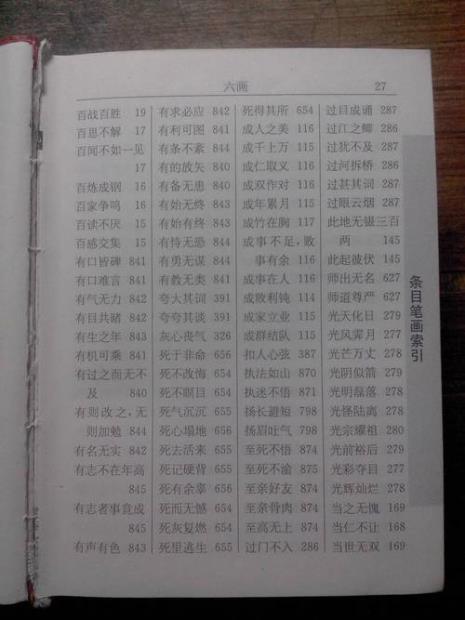 六画
27
百战百胜 19
百思不解 17
百闻不如一见
17
百炼成钢 16
百家争鸣 16
百读不厌 15
百感交集 15
有口皆碑 841
有口难言 841
有气无力 842
有目共睹 842
有生之年 843
有机可乘 841
有过之而无不
及 840
有则改之,无
则加勉 844
有名无实 842
有志不在年高
845
有志者事竟成
845
有声有色 843
有求必应 842
有利可图 841
有条不紊 844
有的放矢 840
有备无患 840
有始无终 843
有始有终 843
有恃无恐 844
有勇无谋 844
有教无类 841
夸大其词 391
夸夸其谈 391
灰心丧气 326
死于非命 656
死不改悔 654
死不瞑目 654
死气沉沉 655
死心塌地 656
死去活来 655
死记硬背 655
死有余辜 656
死而无憾 654
死灰复燃 655
死里逃生 655
死得其所 654
成人之美 116
成千上万 115
成仁取义 116
成双作对 116
成年累月 115
成竹在胸 117
成事不足,败
事有余 116
成事在人 116
成败利钝 114
成家立业 115
成群结队 115
扣人心弦 387
执法如山 870
执迷不悟 871
扬长避短 798
扬眉吐气 798
至死不悟 874
至死不渝 875
至亲好友 874
至亲骨肉 874
至高无上 874
过门不入 286
过目成诵 287
过江之鲫 286
过犹不及 287
过河拆桥 286
过甚其词 287
过眼云烟 287
此地无银三百
两 145
此起彼伏 145
师出无名 627
师道尊严 627
光天化日 279
光风霁月 277
光芒万丈 278
光阴似箭 279
光明磊落 278
光怪陆离 278
光宗耀祖 280
光前裕后 279
光彩夺目 277
光辉灿烂 278
当之无愧 169
当仁不让 168
当世无双 169
条目笔画索引